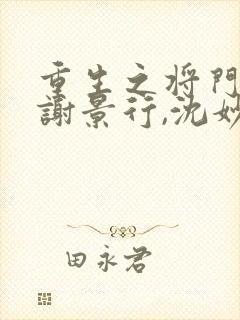 重生之将門
謝景行,沈妙
田永君